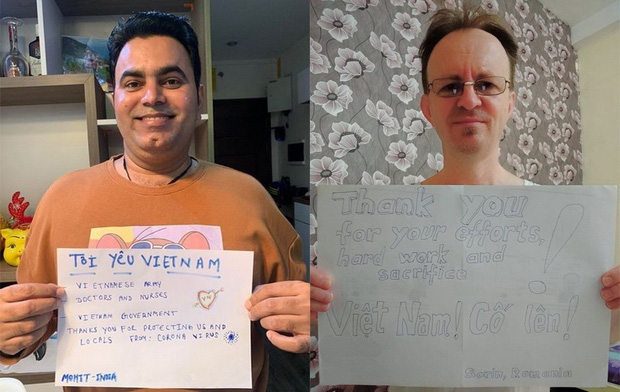 TÔI YÊU VIETNAM
VIETNAMESE ARMY
DOCTORS AND NURSES
VIETNAM GOVERNMENT
THANKS YOU FOR PROTECTING US AND
LOCALS FROM: CORONA VIRUS
MOHIT-INDIA
Thank you
for your efforts,
hard work and
sacrifice!
Việt Nam! Cố lên!
Romania